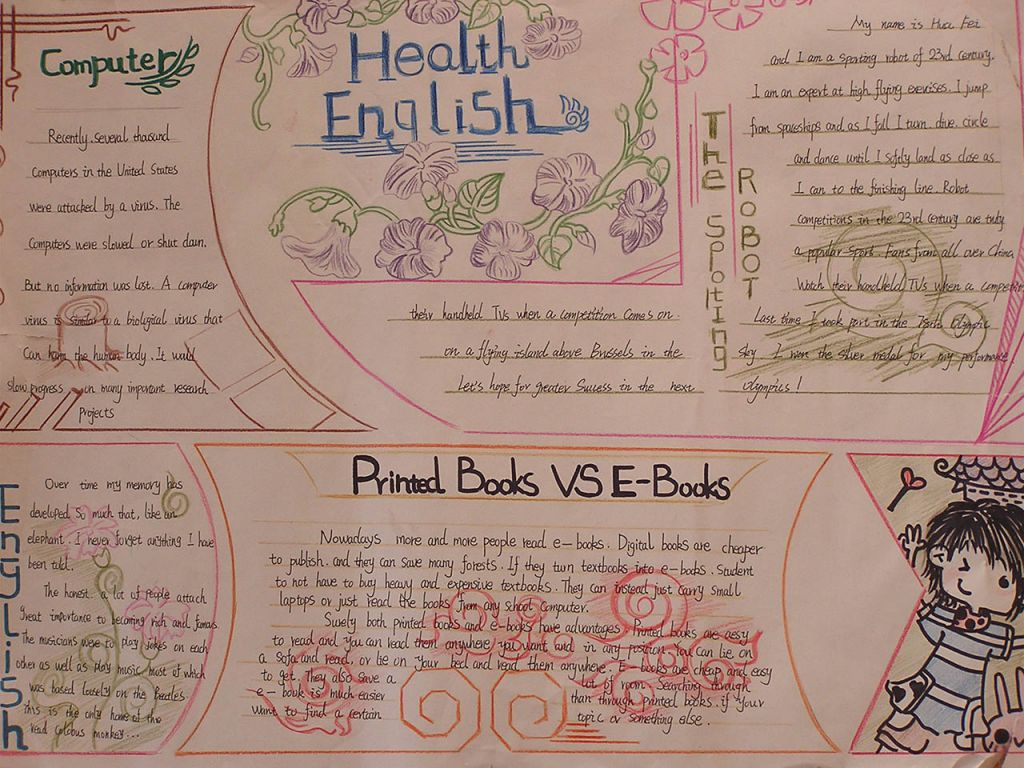 Computer
Recently. Several thousand
Computers in the United States
were attacked by a virus. The
Computers were slowed or shut down.
But no information was lost. A computer
virus is similar to a biological virus that
Can harm the human body. It would
slow progress on many important research
Projects
Health
English
The Spotting
ROBOT
My name is Hua Fei
and I am a sporting robot of 23rd century.
I am an expert at high flying exercises. I jump
from spaceships and as I fall I turn. dive. circle
and dance until I safely land as close as
I can to the finishing line. Robot
competitions in the 23rd century are truly
a popular sport. Fans from all over China
Watch their handheld TVs when a competit
their handheld TVs when a competition comes on.
on a flying island above Brussels in the
Let's hope for greater Success in the next
Last time I took part in the Olympic
sky. I won the silver medal for my performance
Olympics!
English
Over time my memory has
developed So much that, like an
elephant. I never forget anything I have
been told.
The honest. a lot of people attach
Great importance to becoming rich and famous
The musicians were to play jokes on each
other as well as play music, most of which
was based loosely on the Beatles.
this is the only home of the
read colobus monkey...
Printed Books VS E-Books
Nowadays more and more people read e-books. Digital books are cheaper
to publish. and they can save many forests. If they turn textbooks into e-books. Student
to not have to buy heavy and expensive textbooks. They can instead just carry small
laptops or just read the books from any school computer.
Suely both printed books and e-books have advantages. Printed books are aesy
to read and you can read them anywhere you want and in any position. You can lie on
a Sofa and read, or lie on your bed and read them anywhere. E-books are cheap and easy
to get. They also save a lot of room. Searching through
e-book is much easier than through printed books. if your
want to find a certain topic or something else.